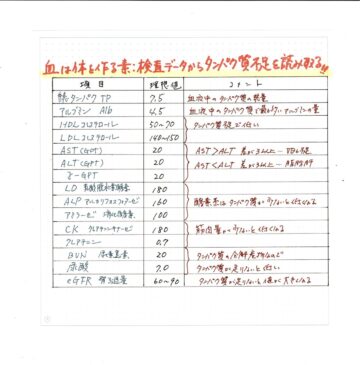 血は体を作る素:検査データからタンパク質不足を読み取る!!
項目 理想値 コメント
総タンパク TP 7.5 血液中のタンパク質の総量
アルブミン Alb 4.5 血液中のタンパク質で最も多いアルブミンの量
HDLコレステロール 50~70 タンパク質不足で低い
LDLコレステロール 140~150
AST (GOT) 20 AST>ALT 差が3以上~
ALT (GPT) 20 AST<ALT 差が3以上~脂肪肝
γ-GPT 20
LD 乳酸脱水素酵素 180
ALP アルカリフォスファターゼ 160 酵素系はタンパク質が少ないと低くなる
アミラーゼ 消化酵素 100
CK クレアチンキナーゼ 180 筋肉量が少ないと低くなる
クレアチニン 0.7
BUN 尿素窒素 20 タンパク質の分解産物なので
尿酸 7.0 タンパク質が足りないと低い
eGFR 60~90 タンパク質が足りないと値が大きくなる